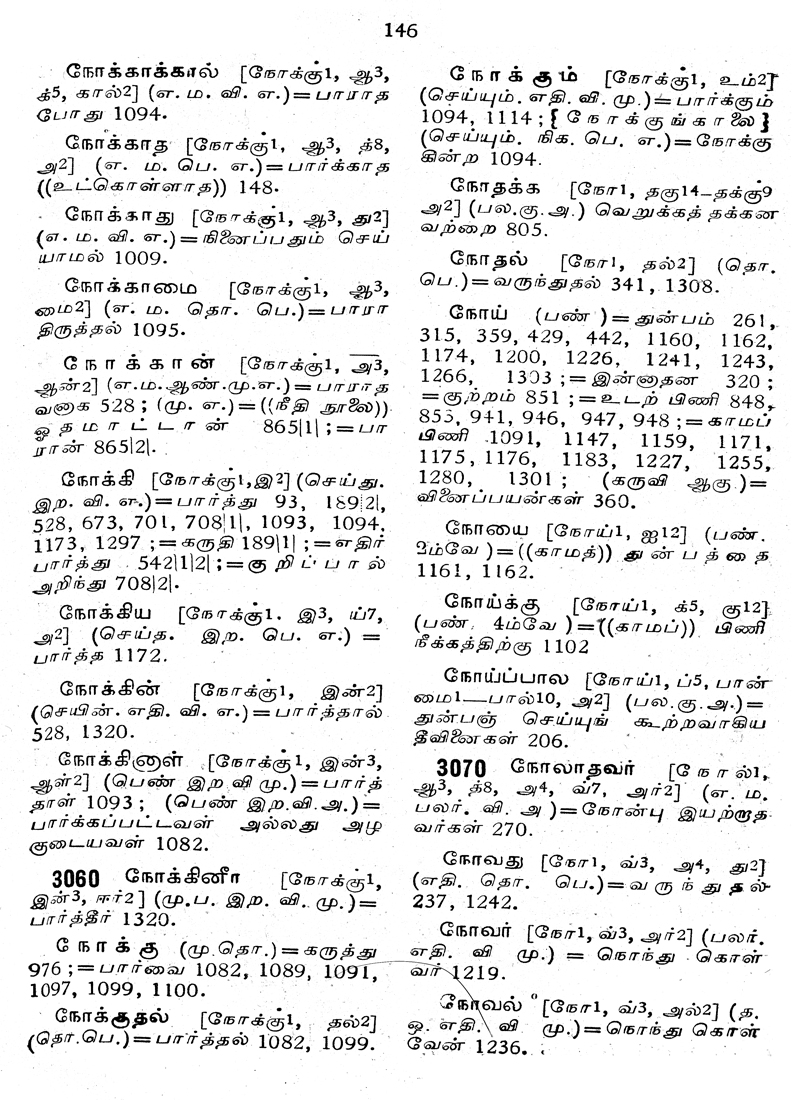 146
நோக்காக்கால் [நோக்கு1, ஆ3,
க்5, கால்2] (எ. ம. வி. எ.)=பாராத
போது 1094.
நோக்காத [நோக்கு1, ஆ3, த்8,
அ2] (எ. ம. பெ. எ.)=பார்க்காத
((உட்கொள்ளாத)) 148.
நோக்காது [நோக்கு1, ஆ3, து2]
(எ. ம. வி. எ.)=நினைப்பதும் செய்
யாமல் 1009.
நோக்காமை [நோக்கு1, ஆ3,
மை2] (எ. ம. தொ. பெ.)=பாரா
திருத்தல் 1095.
நோக்கான் [நோக்கு1, அ3,
ஆன்2] (எ.ம.ஆண்.மு.எ.)=பாராத
வனாக 528; (மு. எ.)=((நீதி நூலை))
ஓதமாட்டான் 865|1|;=பா
ரான் 865|2|.
நோக்கி [நோக்கு1,இ2] (செய்து.
இற. வி. எ.)=பார்த்து 93, 189|2|,
528, 673, 701, 708|1|, 1093, 1094.
1173, 1297 ;=கருதி 189|1| ;=எதிர்
பார்த்து 542|1|2| ;=குறிப்பால்
அறிந்து 708|2|.
நோக்கிய [நோக்கு1. இ3, ய்7,
அ2] (செய்த. இற. பெ. எ.) =
பார்த்த 1172.
நோக்கின் [நோக்கு1, இன்2]
(செயின். எதி. வி. எ.)=பார்த்தால்
528, 1320.
நோக்கினாள் [நோக்கு1, இன்3,
ஆள்2] (பெண் இற வி மு.)=பார்த்
தாள் 1093; (பெண் இற.வி.அ.)=
பார்க்கப்பட்டவள் அல்லது அழ
குடையவள் 1082.
3060 நோக்கினீர் [நோக்கு1,
இன்3, ஈர்2] (மு.ப. இற. வி. மு.)=
பார்த்தீர் 1320.
நோக்கு (மு.தொ.)=கருத்து
976 ;=பார்வை 1082, 1089, 1091,
1097, 1099, 1100.
நோக்குதல் [நோக்கு1, தல்2]
(தொ.பெ.)=பார்த்தல் 1082, 1099.
நோக்கும் [நோக்கு1, உம்2]
(செய்யும். எதி. வி. மு.)=பார்க்கும்
1094, 1114 ; { நோக்குங்காலை }
(செய்யும். நிக. பெ. எ.)=நோக்கு
கின்ற 1094.
நோதக்க [நோ1, தகு14–தக்கு9
அ2] (பல.கு.அ.) வெறுக்கத் தக்கன
வற்றை 805.
நோதல் [நோ1, தல்2] (தொ.
பெ.)=வருந்துதல் 341, 1308.
நோய் (பண் )=துன்பம் 261,
315, 359, 429, 442, 1160, 1162,
1174, 1200, 1226, 1241, 1243,
1266, 1303 ;=இன்னாதன 320 ;
=குற்றம் 851 ;=உடற் பிணி 848,
853, 941, 946, 947, 948 ;=காமப்
பிணி 1091, 1147, 1159, 1171,
1175, 1176, 1183, 1227, 1255,
1280, 1301 ; (கருவி ஆகு.)=
வினைப்பயன்கள் 360.
நோயை [நோய்1, ஐ12] (பண்.
2ம்வே )=((காமத்)) துன்பத்தை
1161, 1162.
நோய்க்கு [நோய்1, க்5, கு12]
(பண். 4ம்வே )=((காமப்)) பிணி
நீக்கத்திற்கு 1102
நோய்ப்பால [நோய்1, ப்5, பான்
மை1—பால்10, அ2] (பல.கு.அ.)=
துன்பஞ் செய்யுங் கூற்றவாகிய
தீவினைகள் 206.
3070 நோலாதவர் [நோல்1,
ஆ3, த்8, அ4, வ்7, அர்2] (எ. ம.
பலர். வி. அ )=நோன்பு இயற்றாத
வர்கள் 270.
நோவது [நோ1, வ்3, அ4, து2]
(எதி. தொ. பெ.)=வருந்துதல்
237, 1242.
நோவர் [நோ1, வ்3, அர்2] (பலர்.
எதி. வி மு.) = நொந்து கொள்
வர் 1219.
நோவல் [நோ1, வ்3, அல்2] (த.
ஒ. எதி. வி மு.)=நொந்து கொள்
வேன் 1236.